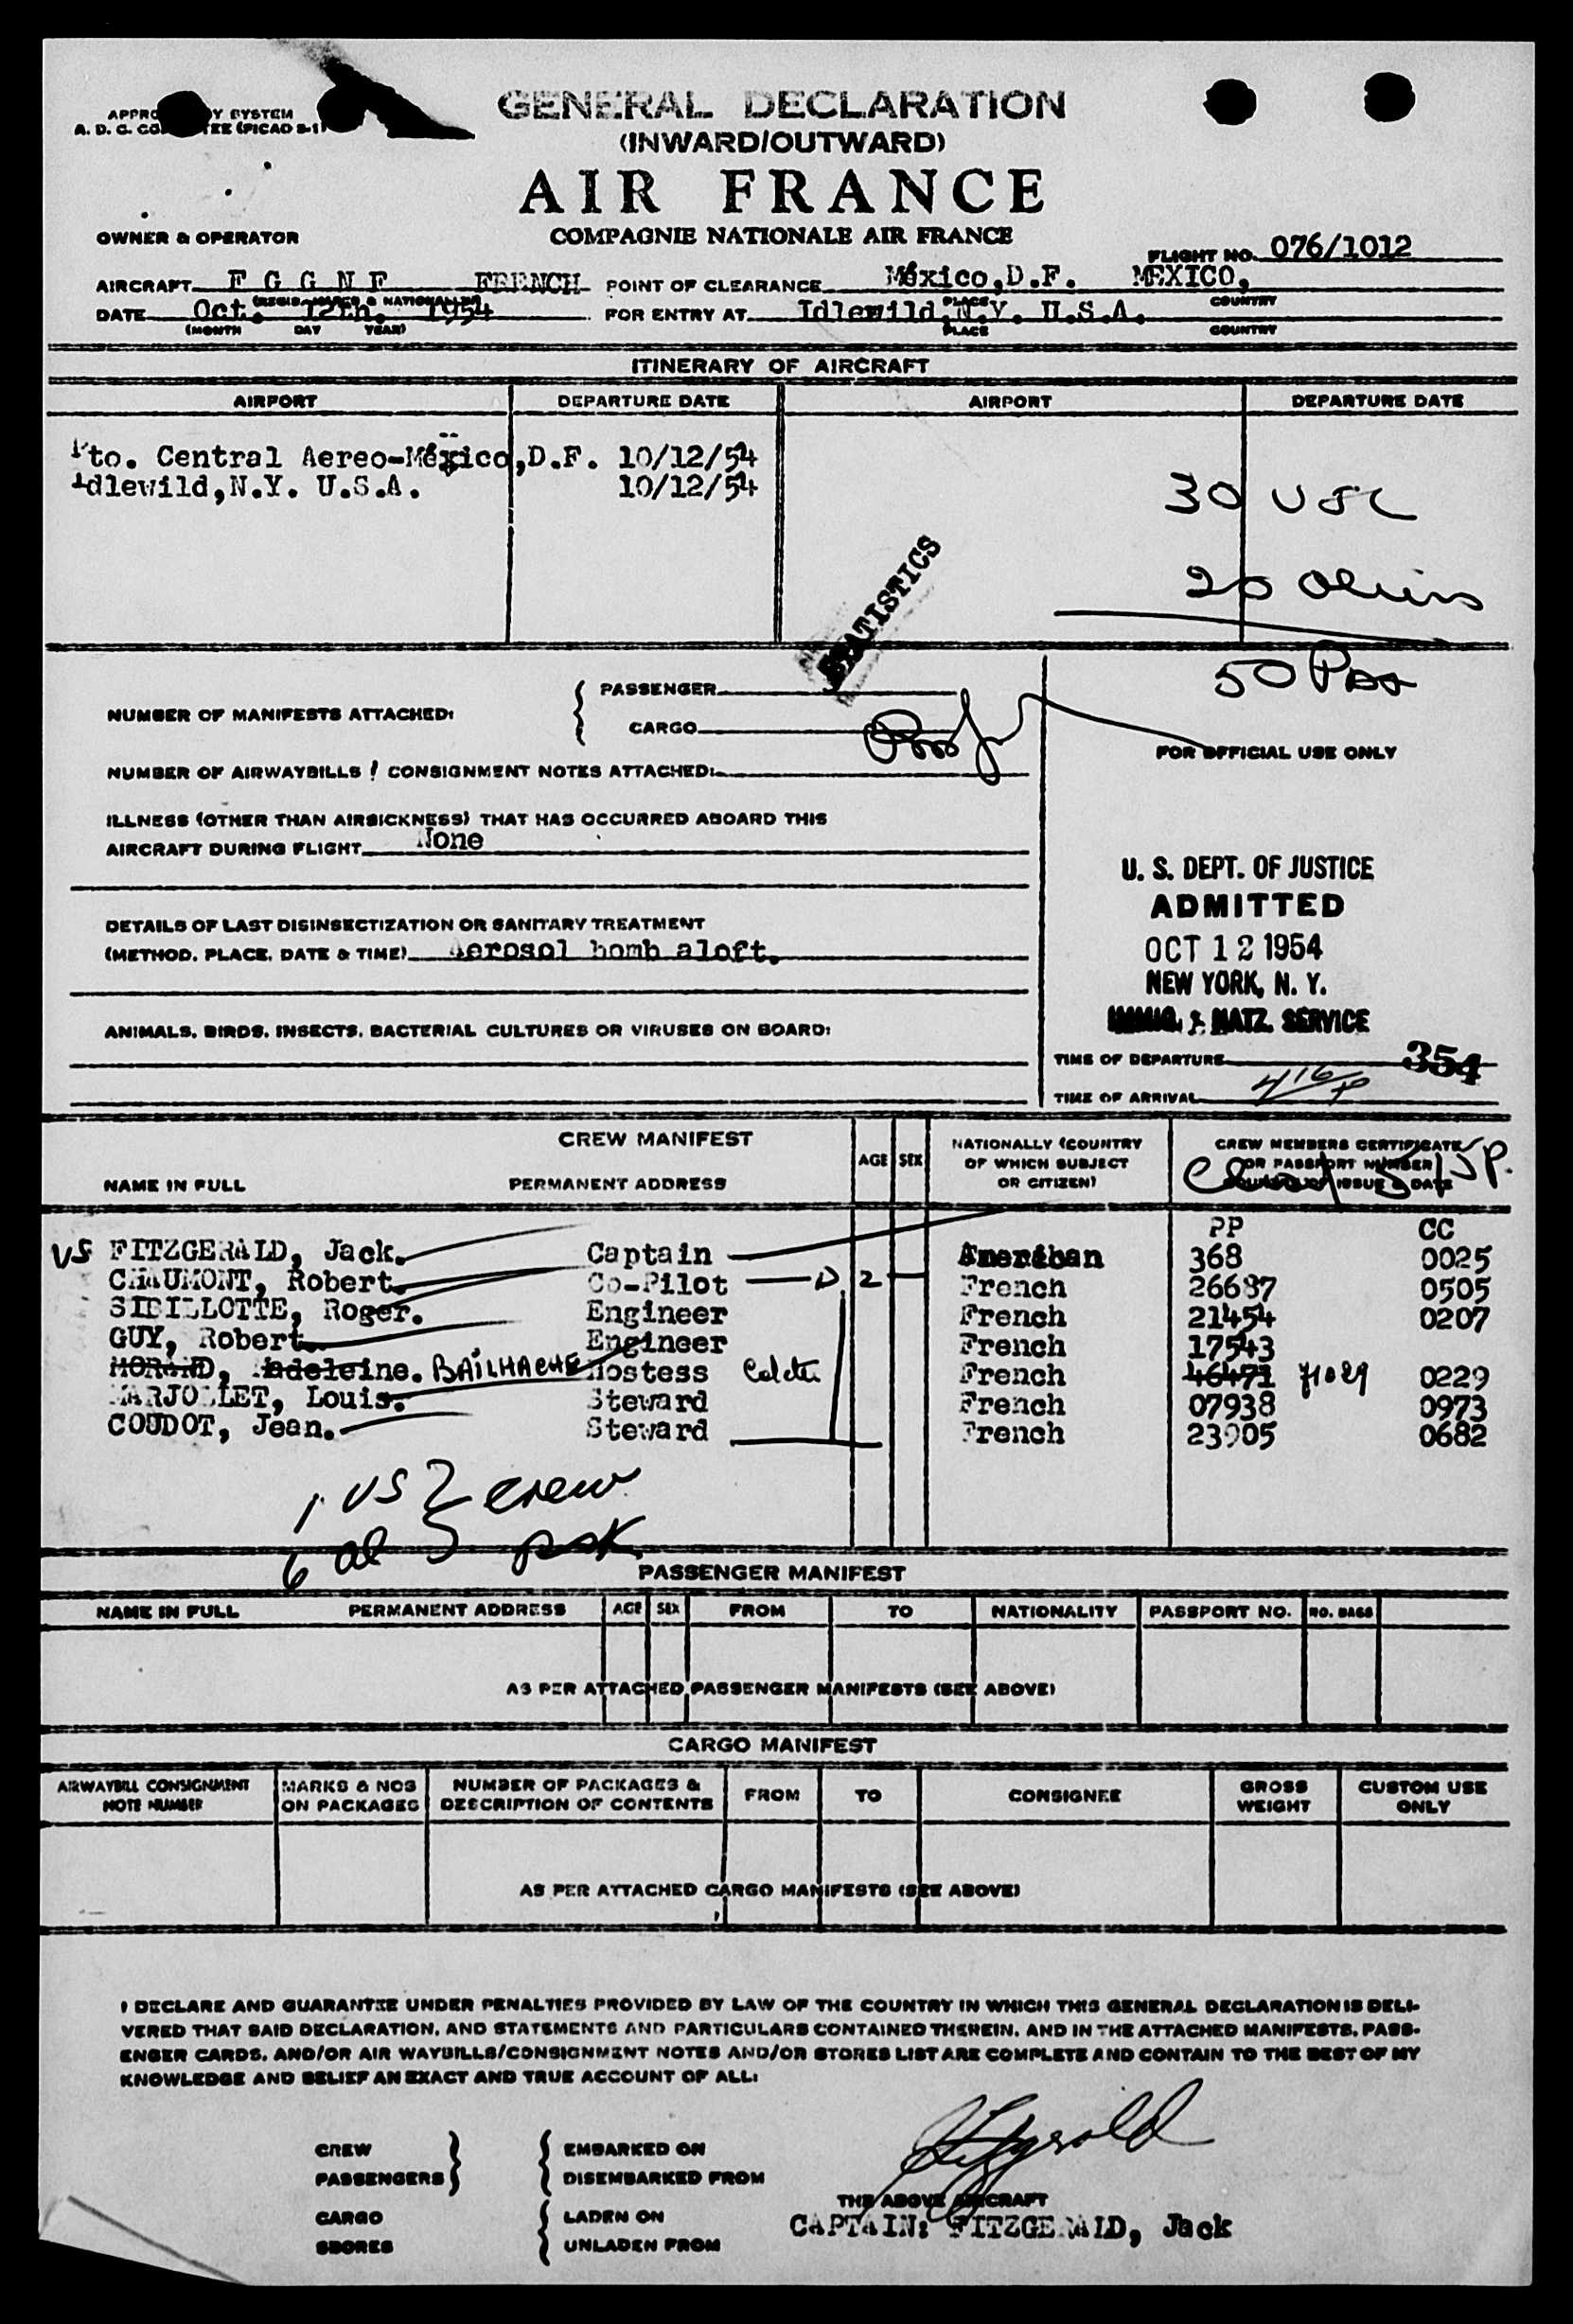 GENERAL DECLARATION
(INWARD/OUTWARD)
AIR FRANCE
COMPAGNIE NATIONALE AIR FRANCE
OWNER & OPERATOR
FLIGHT NO. 076/1012
AIRCRAFT F G G N F FRENCH POINT OF CLEARANCE México,D.F. MEXICO,
(REGIS. MARKS & NATIONALITY) PLACE COUNTRY
DATE Oct. 12th. 1954 FOR ENTRY AT Idlewild,N.Y. U.S.A.
(MONTH DAY YEAR) PLACE COUNTRY
ITINERARY OF AIRCRAFT
AIRPORT DEPARTURE DATE AIRPORT DEPARTURE DATE
Pto. Central Aereo-México,D.F. 10/12/54
Idlewild,N.Y. U.S.A. 10/12/54
30 USC
20 Aliens
50 Pas
STATISTICS
NUMBER OF MANIFESTS ATTACHED:
PASSENGER
CARGO
NUMBER OF AIRWAYBILLS / CONSIGNMENT NOTES ATTACHED:
FOR OFFICIAL USE ONLY
ILLNESS (OTHER THAN AIRSICKNESS) THAT HAS OCCURRED ABOARD THIS
AIRCRAFT DURING FLIGHT None
DETAILS OF LAST DISINSECTIZATION OR SANITARY TREATMENT
(METHOD, PLACE, DATE & TIME) Aerosol bomb aloft.
ANIMALS, BIRDS, INSECTS, BACTERIAL CULTURES OR VIRUSES ON BOARD:
U. S. DEPT. OF JUSTICE
ADMITTED
OCT 12 1954
NEW YORK, N. Y.
IMMIG. & NATZ. SERVICE
TIME OF DEPARTURE 354
TIME OF ARRIVAL 416 P
CREW MANIFEST
NAME IN FULL PERMANENT ADDRESS AGE SEX NATIONALLY (COUNTRY OF WHICH SUBJECT OR CITIZEN) CREW MEMBERS CERTIFICATE OR PASSPORT NUMBER COUNTRY OF ISSUE & DATE
PP CC
US FITZGERALD, Jack. Captain American 368 0025
CHAUMONT, Robert. Co-Pilot D 2 French 26687 0505
SIBILLOTTE, Roger. Engineer French 21454 0207
GUY, Robert. Engineer French 17543
MORAND, Madeleine. BAILHACHE Hostess French 46471 71029 0229
MARJOLLET, Louis. Steward French 07938 0973
COUDOT, Jean. Steward French 23905 0682
1 US crew
6 al
PASSENGER MANIFEST
NAME IN FULL PERMANENT ADDRESS AGE SEX FROM TO NATIONALITY PASSPORT NO. NO. BAGS
AS PER ATTACHED PASSENGER MANIFESTS (SEE ABOVE)
CARGO MANIFEST
AIRWAYBILL CONSIGNMENT NOTE NUMBER MARKS & NOS ON PACKAGES NUMBER OF PACKAGES & DESCRIPTION OF CONTENTS FROM TO CONSIGNEE GROSS WEIGHT CUSTOM USE ONLY
AS PER ATTACHED CARGO MANIFESTS (SEE ABOVE)
I DECLARE AND GUARANTEE UNDER PENALTIES PROVIDED BY LAW OF THE COUNTRY IN WHICH THIS GENERAL DECLARATION IS DELI-
VERED THAT SAID DECLARATION, AND STATEMENTS AND PARTICULARS CONTAINED THEREIN, AND IN THE ATTACHED MANIFESTS, PASS-
ENGER CARDS, AND/OR AIR WAYBILLS/CONSIGNMENT NOTES AND/OR STORES LIST ARE COMPLETE AND CONTAIN TO THE BEST OF MY
KNOWLEDGE AND BELIEF AN EXACT AND TRUE ACCOUNT OF ALL:
CREW EMBARKED ON
PASSENGERS DISEMBARKED FROM
Fitzgerald
THE ABOVE AIRCRAFT
CARGO LADEN ON
CAPTAIN: FITZGERALD, Jack
STORES UNLADEN FROM